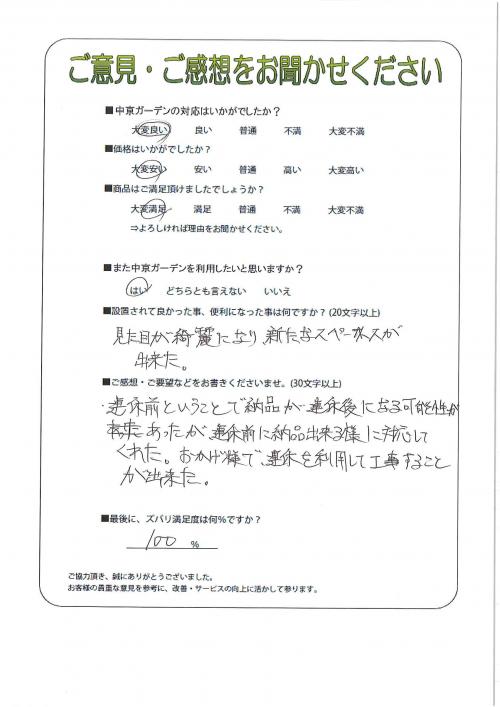 ご意見・ご感想をお聞かせください
■中京ガーデンの対応はいかがでしたか？
大変良い 良い 普通 不満 大変不満
■価格はいかがでしたか？
大変安い 安い 普通 高い 大変高い
■商品はご満足頂けましたでしょうか？
大変満足 満足 普通 不満 大変不満
⇒よろしければ理由をお聞かせください。
■また中京ガーデンを利用したいと思いますか？
はい どちらとも言えない いいえ
■設置されて良かった事、便利になった事は何ですか？(20文字以上)
見た目が綺麗になり、新たなスペースが
出来た。
■ご感想・ご要望などをお書きくださいませ。(30文字以上)
・連休前ということで納品が連休後になる可能性が
あったが、連休前に納品出来る様に対応して
くれた。おかげ様で、連休を利用して工事すること
が出来た。
■最後に、ズバリ満足度は何％ですか？
100 ％
ご協力頂き、誠にありがとうございました。
お客様の貴重な意見を参考に、改善・サービスの向上に活かして参ります。